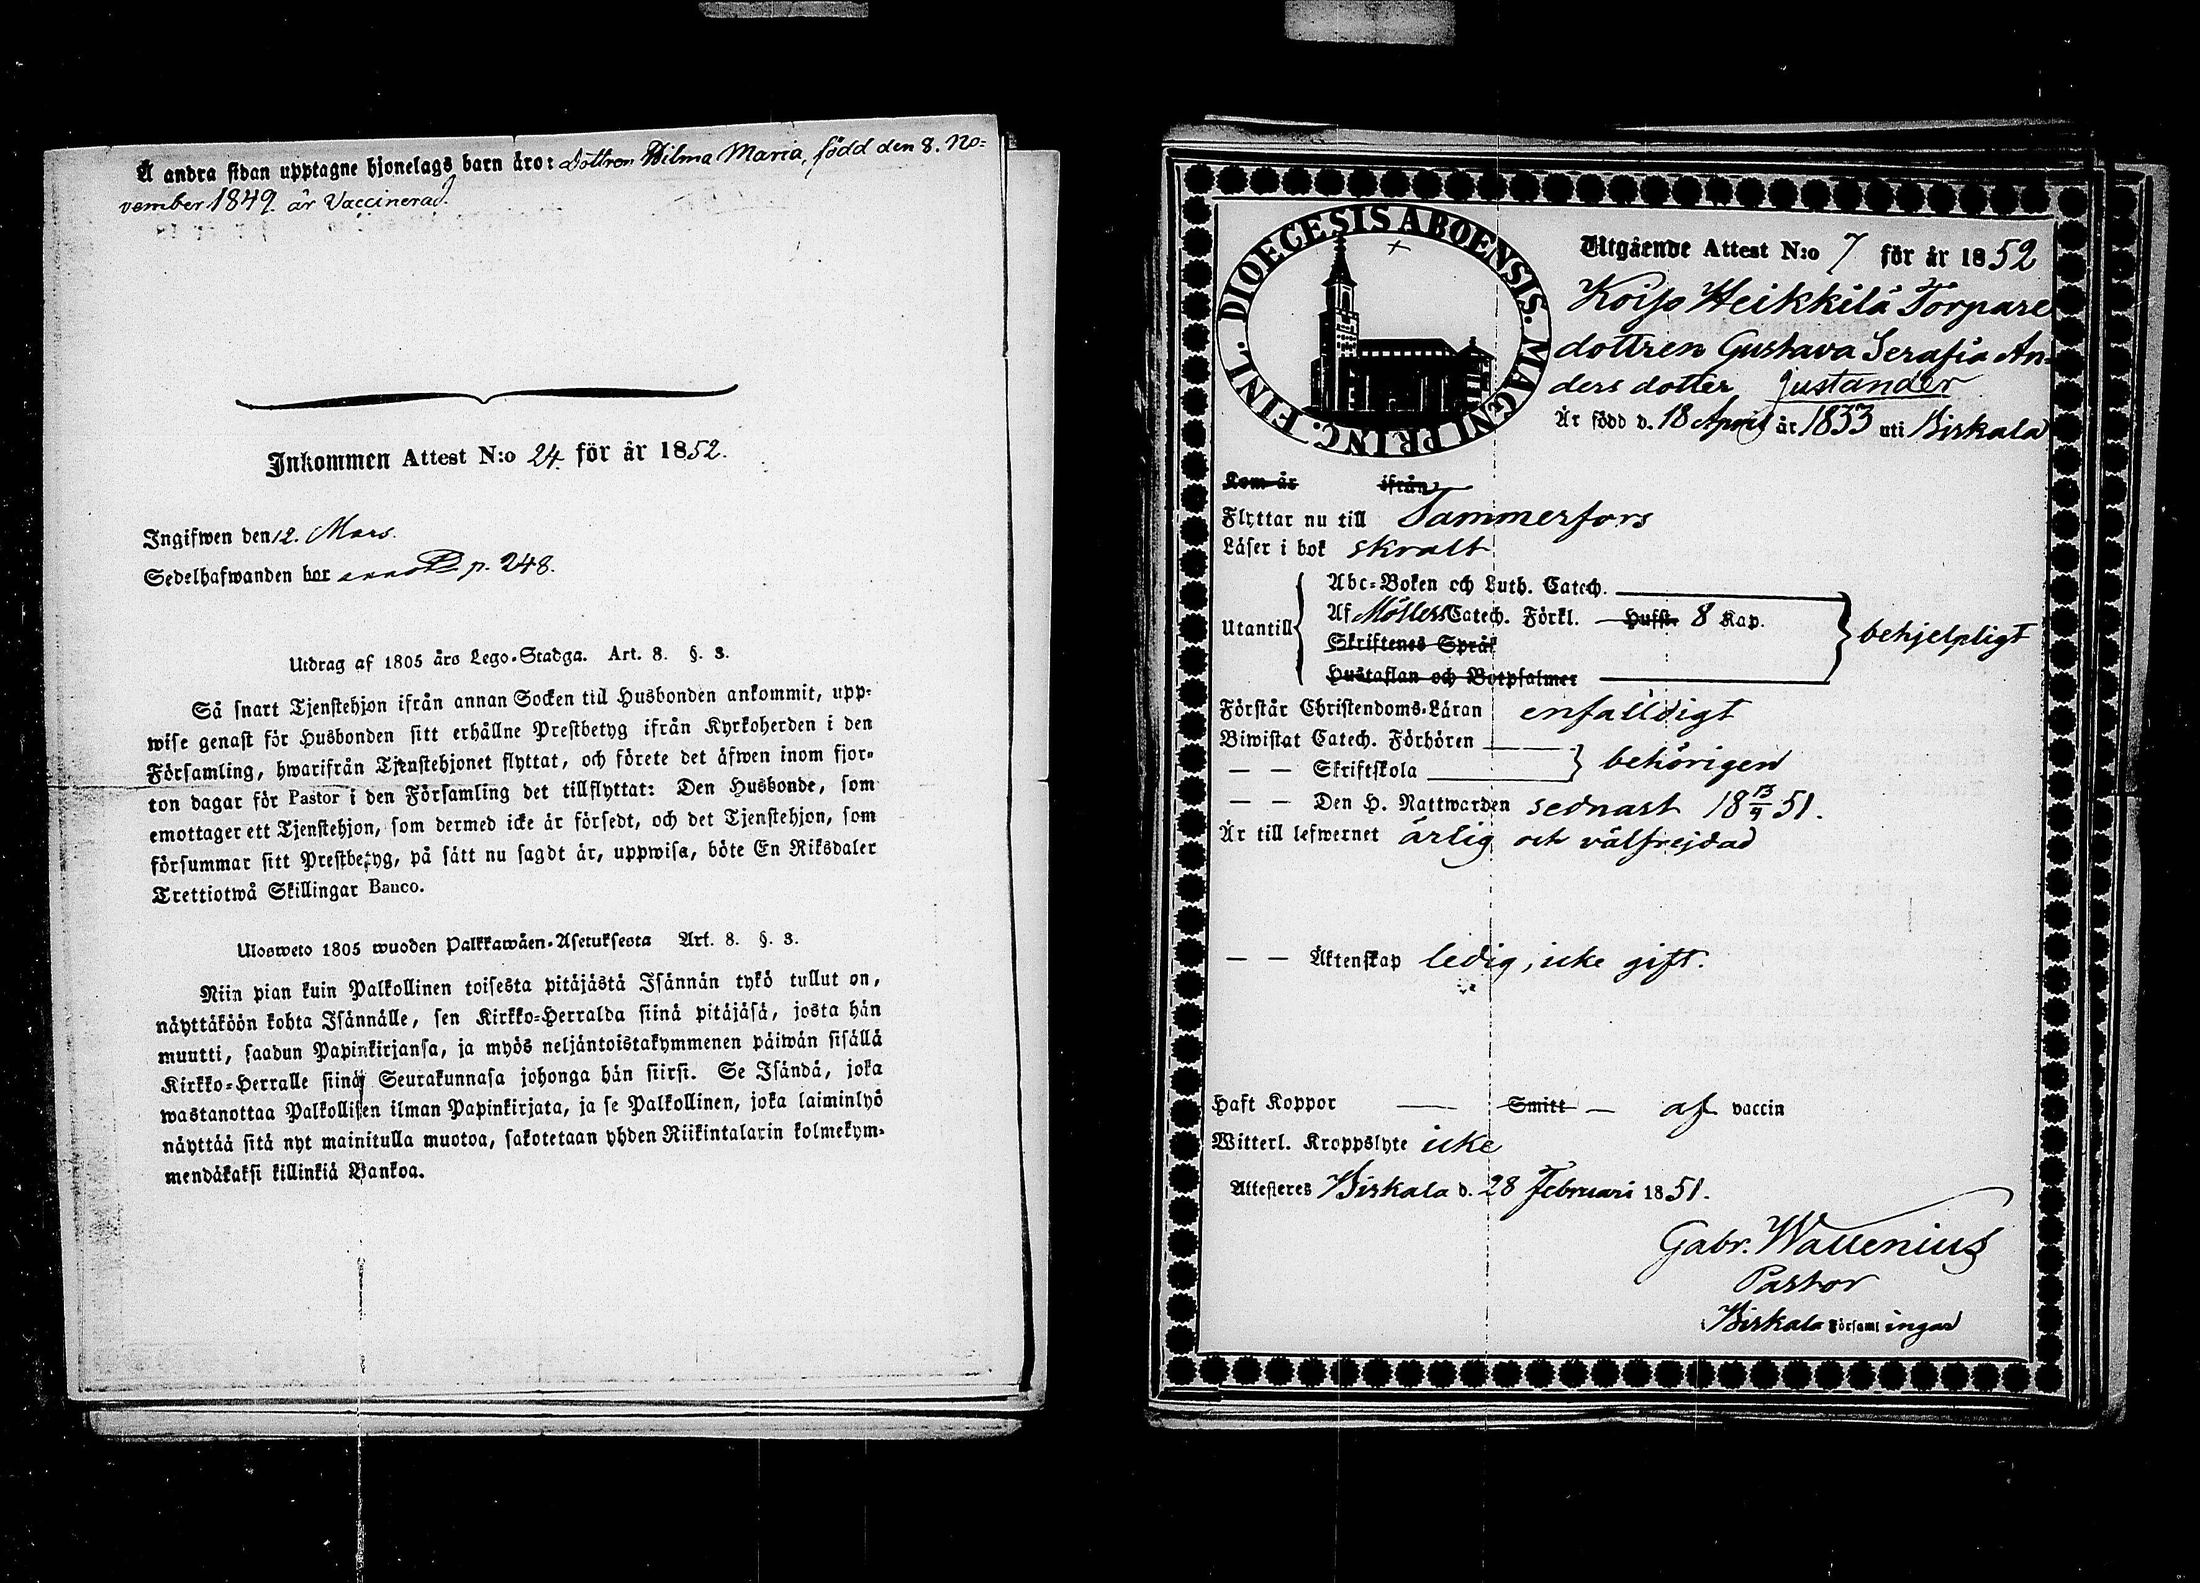 Å andra sidan upptagne hjonelags barn äro: Dottren Wilma Maria, född den 8. No-
vember 1849. är Vaccinerad.
Inkommen Attest N:o 24. för år 1852.
Ingifwen den 12. Mars.
Sedelhafwanden bor p. 248.
Utdrag af 1805 års Lego-Stadga. Art. 8. §. 3.
Så snart Tjenstehjon ifrån annan Socken till Husbonden ankommit, upp-
wise genast för Husbonden sitt erhållne Prestbetyg ifrån Kyrkoherden i den
Församling, hwarifrån Tjenstehjonet flyttat, och förete det äfwen inom fjor-
ton dagar för Pastor i den Församling det tillflyttat: Den Husbonde, som
emottager ett Tjenstehjon, som dermed icke är försedt, och det Tjenstehjon, som
försummar sitt Prestbetyg, på sätt nu sagdt är, uppwisa, böte En Riksdaler
Trettiotwå Skillingar Banco.
Ulosweto 1805 wuoden Palkkawäen-Asetuksesta Art. 8. §. 3.
Niin pian kuin Palkollinen toisesta pitäjästä Isännän tykö tullut on,
näyttäköön kohta Isännälle, sen Kirkko-Herralda siinä pitäjäsä, josta hän
muutti, saadun Papinkirjansa, ja myös neljäntoistakymmenen päiwän sisällä
Kirkko-Herralle siinä Seurakunnasa johonga hän siirsi. Se Isändä, joka
wastanottaa Palkollisen ilman Papinkirjata, ja se Palkollinen, joka laiminlyö
näyttää sitä nyt mainitulla muotoa, sakotetaan yhden Riikintalarin kolmekym-
mendäkaksi killinkiä Bankoa.
DIOECESIS ABOENSIS. MAGNI PRINC. FINL.
Utgående Attest N:o 7 för år 1852
Koiso Heikkilä Torpare
dottren Gustava Serafia An-
ders dotter Justander
Är född d. 18 April år 1833 uti Birkala
Kom år ifrån
Flyttar nu till Tammerfors
Läser i bok skralt
Abc-Boken och Luth. Catech.
Utantill Af Möllers Catech. Förkl. Hufst. 8 Kap. behjelpligt
Skriftenes Språk
Hustaflan och Botpsalmer
Förstår Christendoms-Läran enfälldigt
Biwistat Catech. Förhören
— — Skriftskola behörigen
— — Den H. Nattwarden sednast 18 13/9 51.
Är till lefwernet ärlig och välfrejdad
— — Äktenskap ledig, icke gift.
Haft Koppor — Smitt — af vaccin
Witterl. Kroppslyte icke
Attesteras Birkala d. 28 Februari 1851.
Gabr. Wallenius
Pastor
i Birkala Församlingar